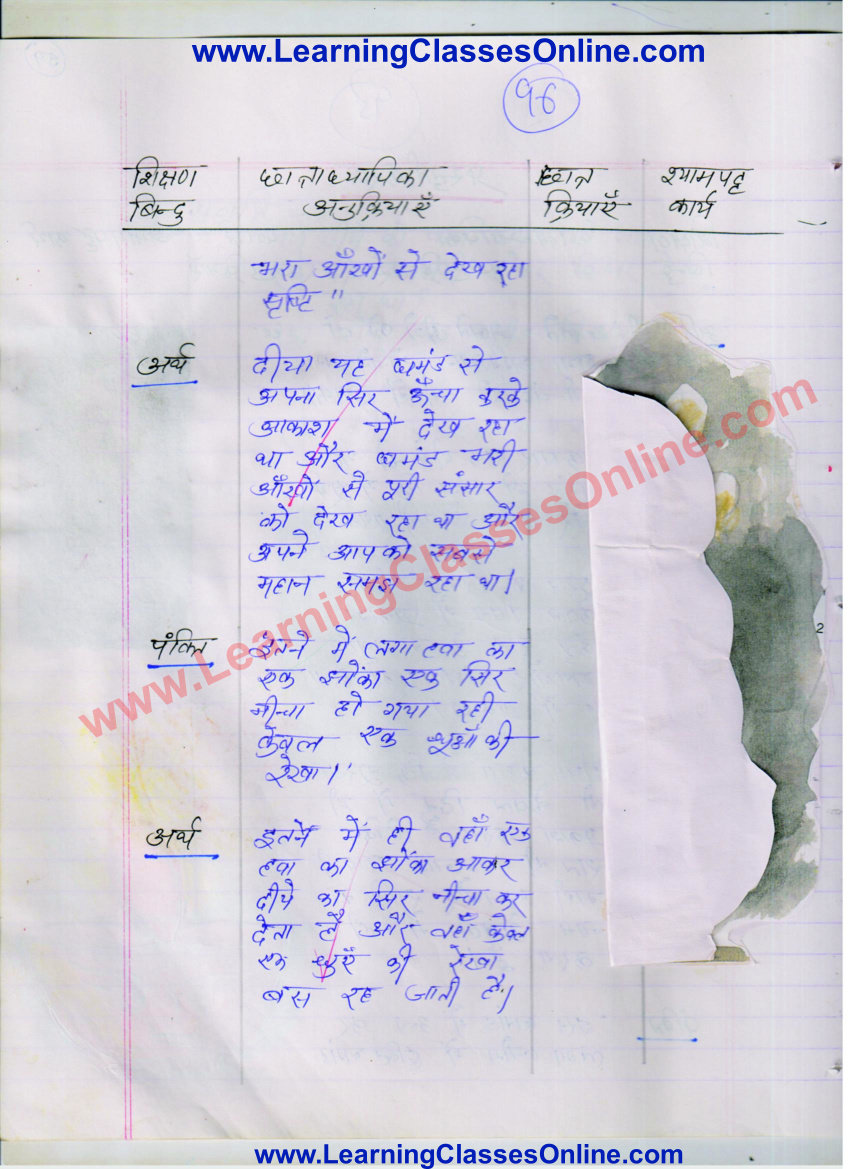 www.LearningClassesOnline.com
96
शिक्षण छात्राध्यापिका छात्र श्यामपट्ट
बिन्दु अनुक्रियाएँ क्रियाएँ कार्य
भरा आँखों से देख रहा
सृष्टि "
अर्थ दीया यह घमंड से
अपना सिर ऊँचा करके
आकाश में देख रहा
था और घमंड भरी
आँखों से पूरी संसार
को देख रहा था और
अपने आप को सबसे
महान समझ रहा था।
पंक्ति इतने में लगा हवा का
एक झोंका एक सिर
नीचा हो गया रही
केवल एक धूआँ की
रेखा।'
अर्थ इतने में ही वहाँ एक
हवा का झोंका आकर
दीये का सिर नीचा कर
देता है और वहाँ केवल
एक धुएँ की रेखा
बस रह जाती है।
2
www.LearningClassesOnline.com
www.LearningClassesOnline.com